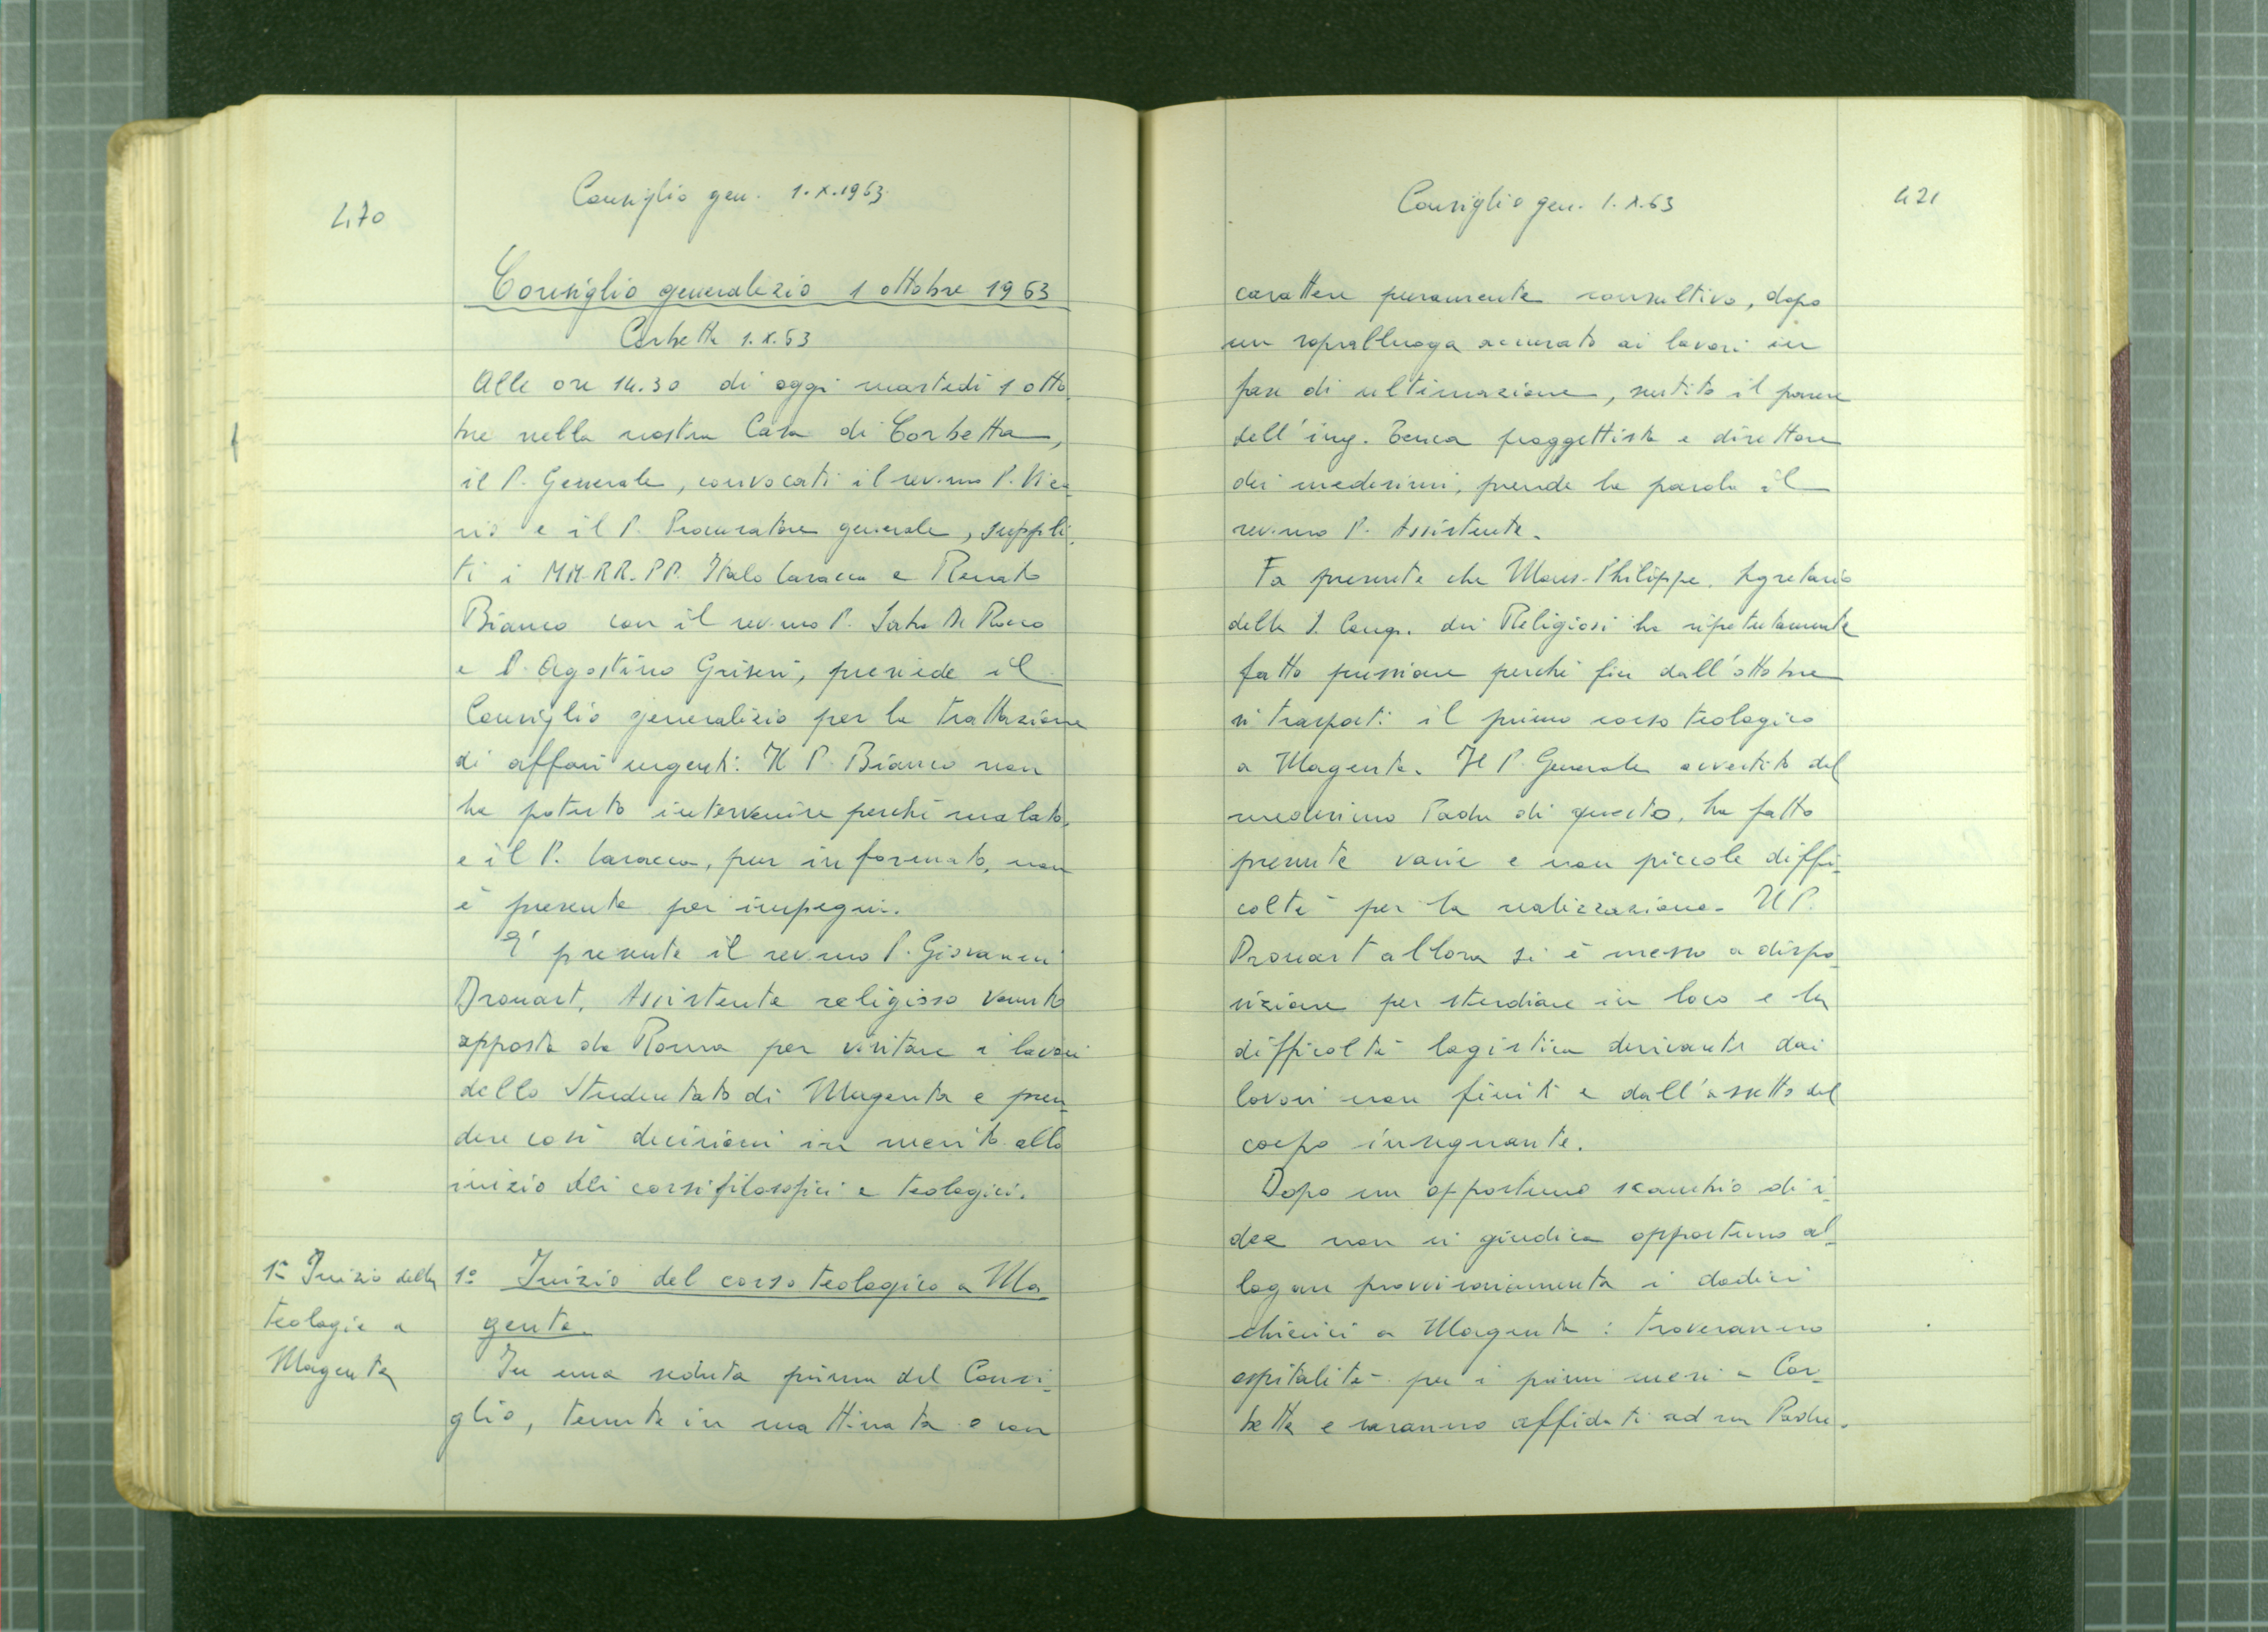 470
Consiglio gen. 1.X.1963.
Consiglio generalizio 1 ottobre 1963
Corbetta 1.X.63
Alle ore 14.30 di oggi martedì 1 otto
bre nella nostra Casa di Corbetta,
il P. Generale, convocati il rev.mo P. Vica
rio e il P. Procuratore generale, suppli
ti i MM.RR.PP. Italo Caracca e Renato
Bianco con il rev.mo P. De Rocco
e P. Agostino Griseri, presiede il
Consiglio generalizio per la trattazione
di affari urgenti. Il P. Bianco non
ha potuto intervenire perché malato,
e il P. Caracca, pur informato, non
è presente per impegni.
E' presente il rev.mo P. Giovanni
Drouart, Assistente religioso venuto
apposta da Roma per visitare i lavori
dello Studentato di Magenta e pren
dere così decisioni in merito allo
inizio dei corsi filosofici e teologici.
1° Inizio della
teologia a
Magenta
1° Inizio del corso teologico a Ma
genta.
In una seduta prima del Consi
glio, tenuta in mattinata e con
Consiglio gen. 1.X.63
421
carattere puramente consultivo, dopo
un sopralluogo accurato ai lavori in
fase di ultimazione, sentito il parere
dell'ing. progettista e direttore
dei medesimi, prende la parola il
rev.mo P. Assistente.
Fa presente che Mons. Philippe, Segretario
della S. Cong. dei Religiosi ha ripetutamente
fatto pressione perché fin dall'ottobre
si trasporti il primo corso teologico
a Magenta. Il P. Generale avvertito dal
medesimo Padre di questo, ha fatto
presente varie e non piccole diffi
coltà per la realizzazione. Il P.
Drouart allora si è messo a dispo
sizione per studiare in loco e la
difficoltà logistica derivante dai
lavori non finiti e dall'assetto del
corpo insegnante.
Dopo un opportuno scambio di i
dee non si giudica opportuno al
logare provvisoriamente i dodici
chierici a Magenta: troveranno
ospitalità per i primi mesi a Cor
betta e saranno affidati ad un Padre.